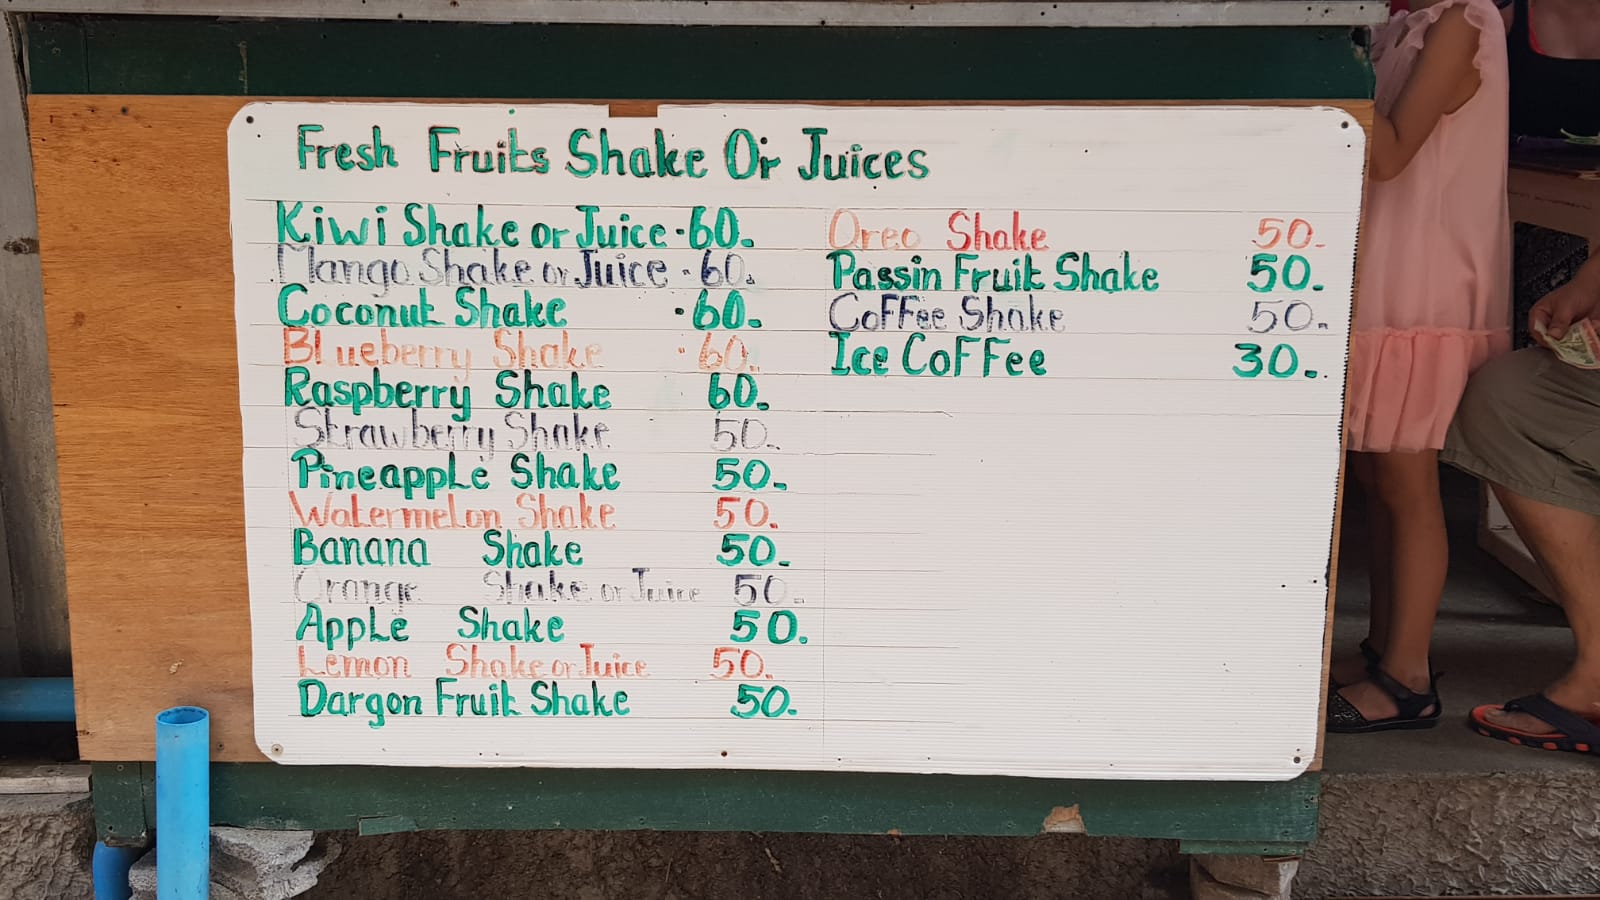 Fresh Fruits Shake Or Juices
Kiwi Shake or Juice - 60.
Mango Shake or Juice - 60.
Coconut Shake - 60.
Blueberry Shake - 60.
Raspberry Shake 60.
Strawberry Shake 50.
Pineapple Shake 50.
Watermelon Shake 50.
Banana Shake 50.
Orange Shake or Juice 50.
Apple Shake 50.
Lemon Shake or Juice 50.
Dargon Fruit Shake 50.
Oreo Shake 50.
Passin Fruit Shake 50.
Coffee Shake 50.
Ice Coffee 30.